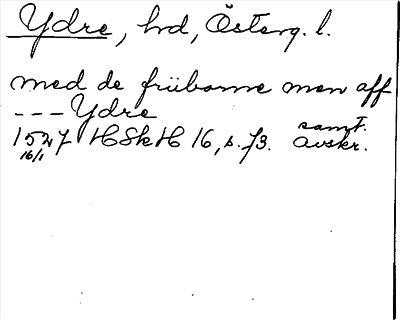 Ydre, hrd, Österg. l.
med de friiborne men aff
--- Ydre
1527 HSkH 16, s. 73. samt. avskr.
16/1